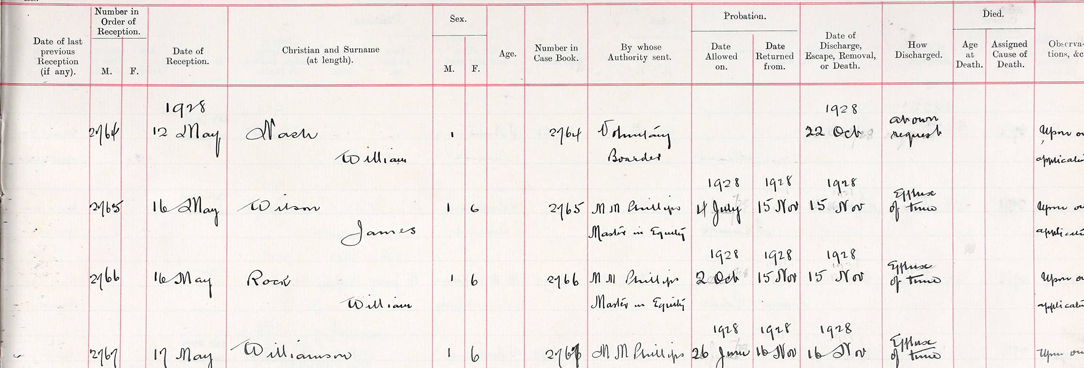 Number in
Order of
Reception.
Sex.
Probation.
Died.
Date of last
previous
Reception
(if any).
M.
F.
Date of
Reception.
Christian and Surname
(at length).
M.
F.
Age.
Number in
Case Book.
By whose
Authority sent.
Date
Allowed
on.
Date
Returned
from.
Date of
Discharge,
Escape, Removal,
or Death.
How
Discharged.
Age
at
Death.
Assigned
Cause of
Death.
Observa-
tions, &c
1928
2764 12 May Nash 1 2764 Voluntary 1928 22 Oct at own request Upon
William Boarder
2765 16 May Wilson 1 6 2765 M M Phillips 1928 4 July 1928 15 Nov 1928 15 Nov Efflux of time Upon
James Master in Equity
2766 16 May Rock 1 6 2766 M M Phillips 1928 2 Oct 1928 15 Nov 1928 15 Nov Efflux of time Upon
William Master in Equity
2767 17 May Williamson 1 6 2767 M M Phillips 1928 26 June 1928 16 Nov 1928 16 Nov Efflux of time Upon